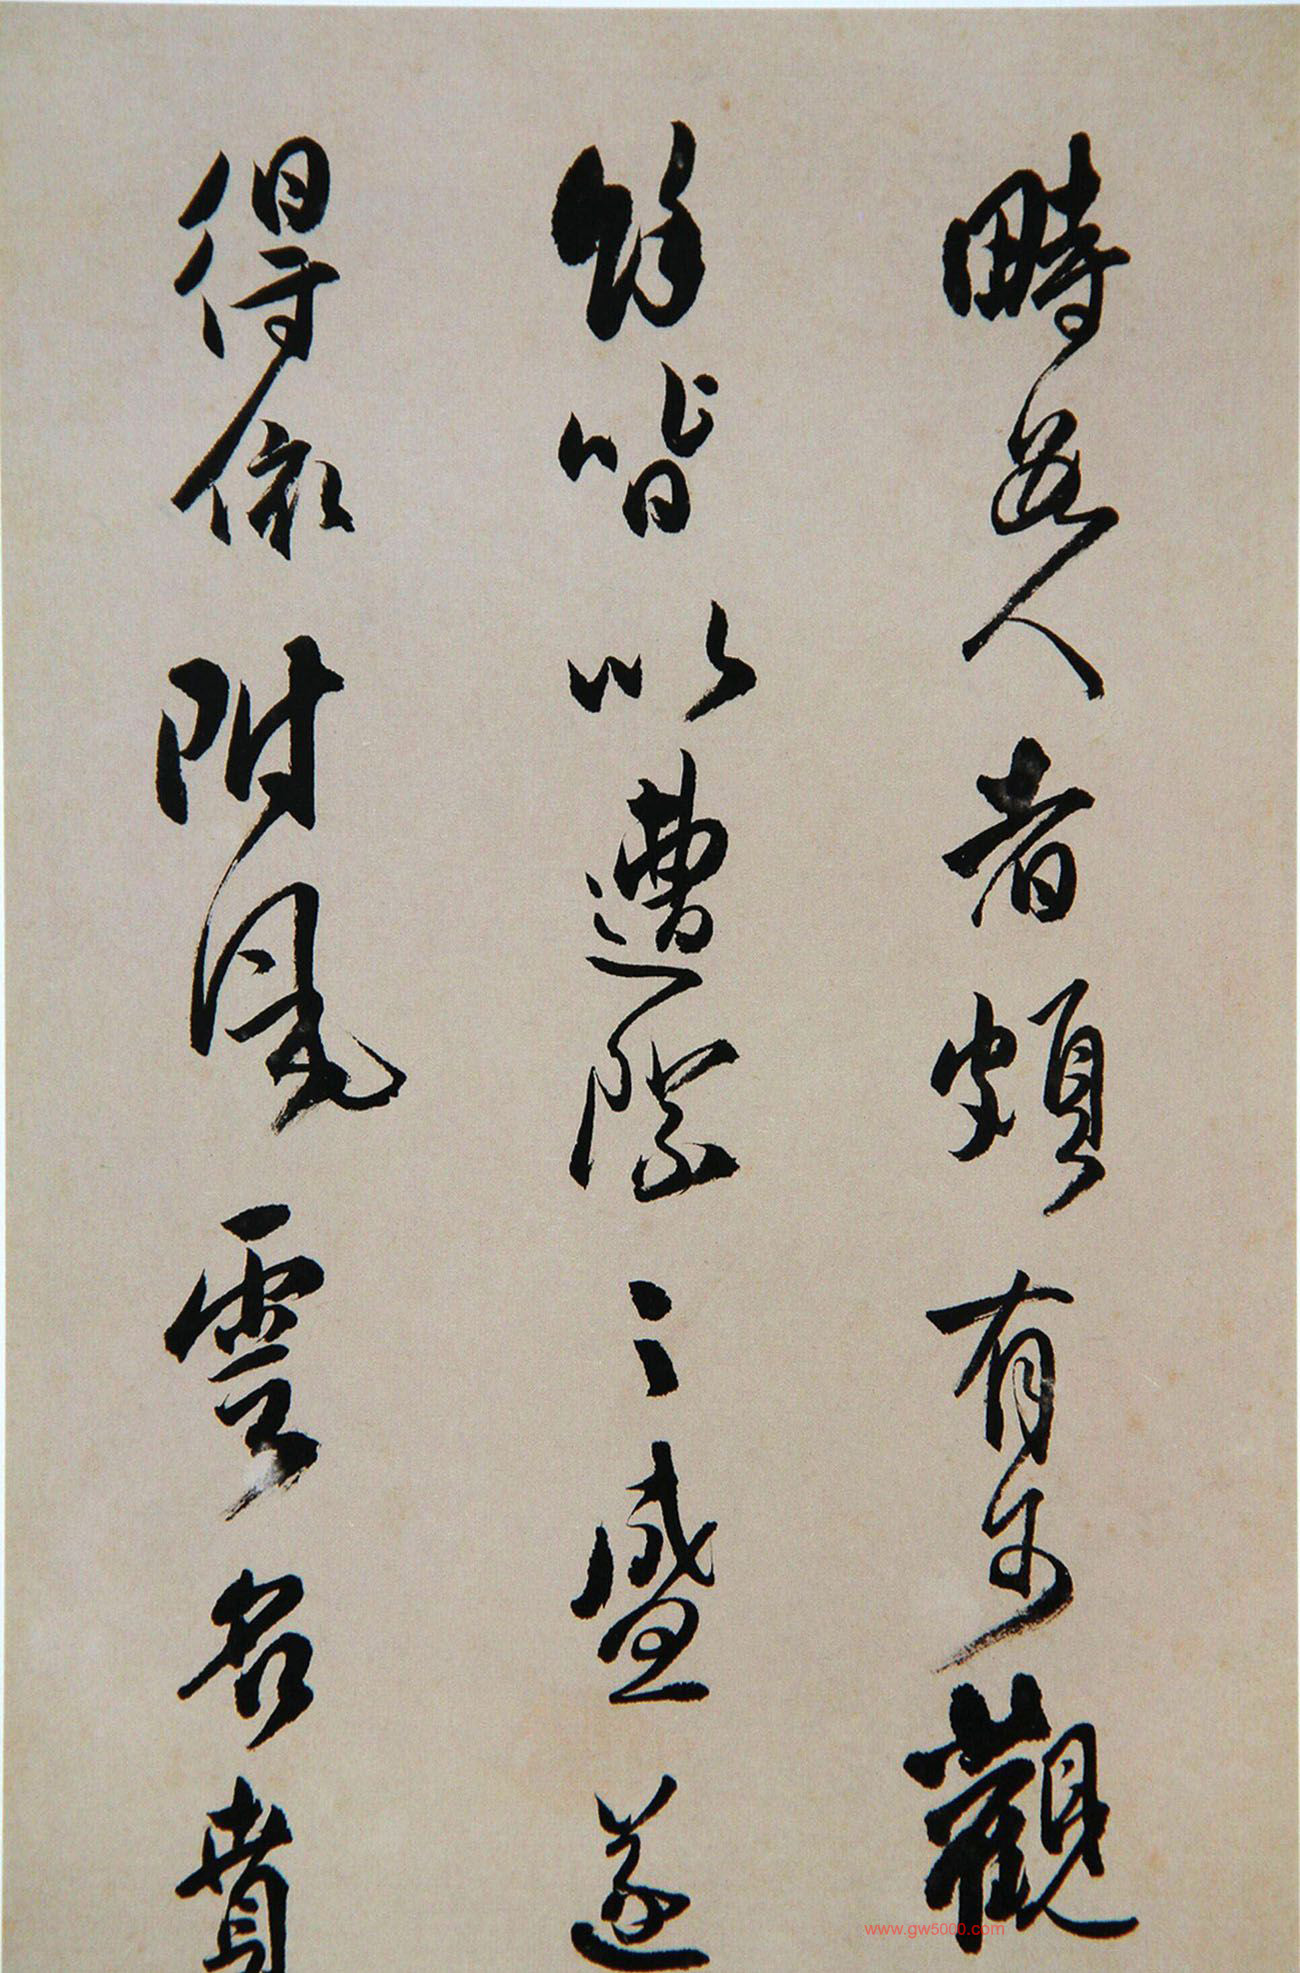 疇若人者頗有可觀
餘皆以遭際之盛遂
得依附風雲名貴
www.gw5000.com